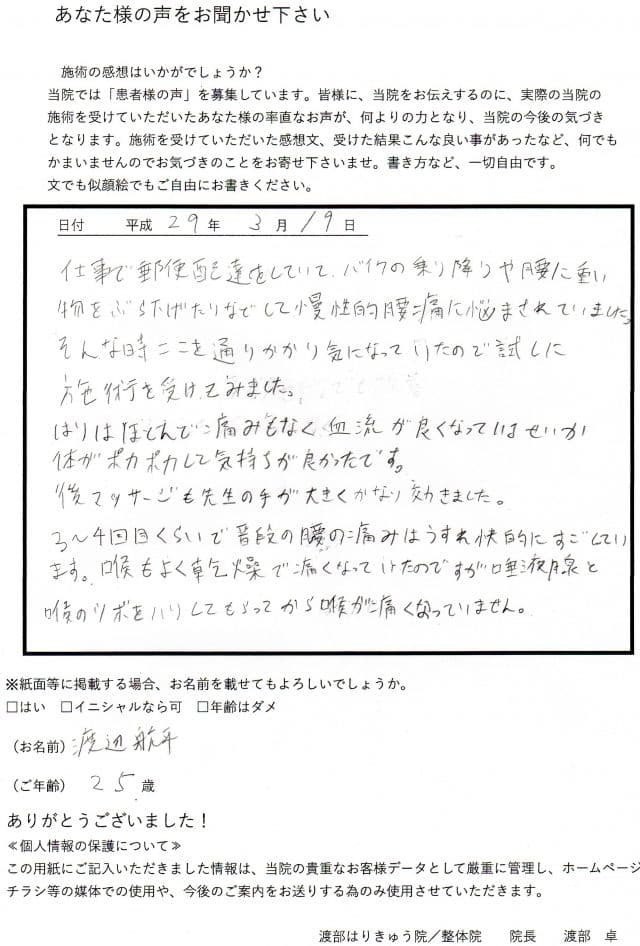 あなた様の声をお聞かせ下さい
施術の感想はいかがでしょうか？
当院では「患者様の声」を募集しています。皆様に、当院をお伝えするのに、実際の当院の
施術を受けていただいたあなた様の率直なお声が、何よりの力となり、当院の今後の気づき
となります。施術を受けていただいた感想文、受けた結果こんな良い事があったなど、何でも
かまいませんのでお気づきのことをお寄せ下さいませ。書き方など、一切自由です。
文でも似顔絵でもご自由にお書きください。
日付 平成 29 年 3 月 19 日
仕事で郵便配達をしていて、バイクの乗り降りや腰に重い
物をぶら下げたりなどして慢性的腰痛に悩まされていました。
そんな時ここを通りかかり気になっていたので試しに
施術を受けてみました。
はりはほとんど痛みもなく血流が良くなっているせいか
体がポカポカして気持ちが良かったです。
後マッサージも先生の手が大きくかなり効きました。
3〜4回目くらいで普段の腰の痛みはうすれ快的にすごしてい
ます。喉もよく乾燥で痛くなっていたのですが唾液腺と
喉のツボをハリしてもらってから喉が痛くなっていません。
※紙面等に掲載する場合、お名前を載せてもよろしいでしょうか。
□はい □イニシャルなら可 □年齢はダメ
（お名前）渡辺航平
（ご年齢） 25 歳
ありがとうございました！
≪個人情報の保護について≫
この用紙にご記入いただきました情報は、当院の貴重なお客様データとして厳重に管理し、ホームページ
チラシ等の媒体での使用や、今後のご案内をお送りする為のみ使用させていただきます。
渡部はりきゅう院／整体院 院長 渡部 卓